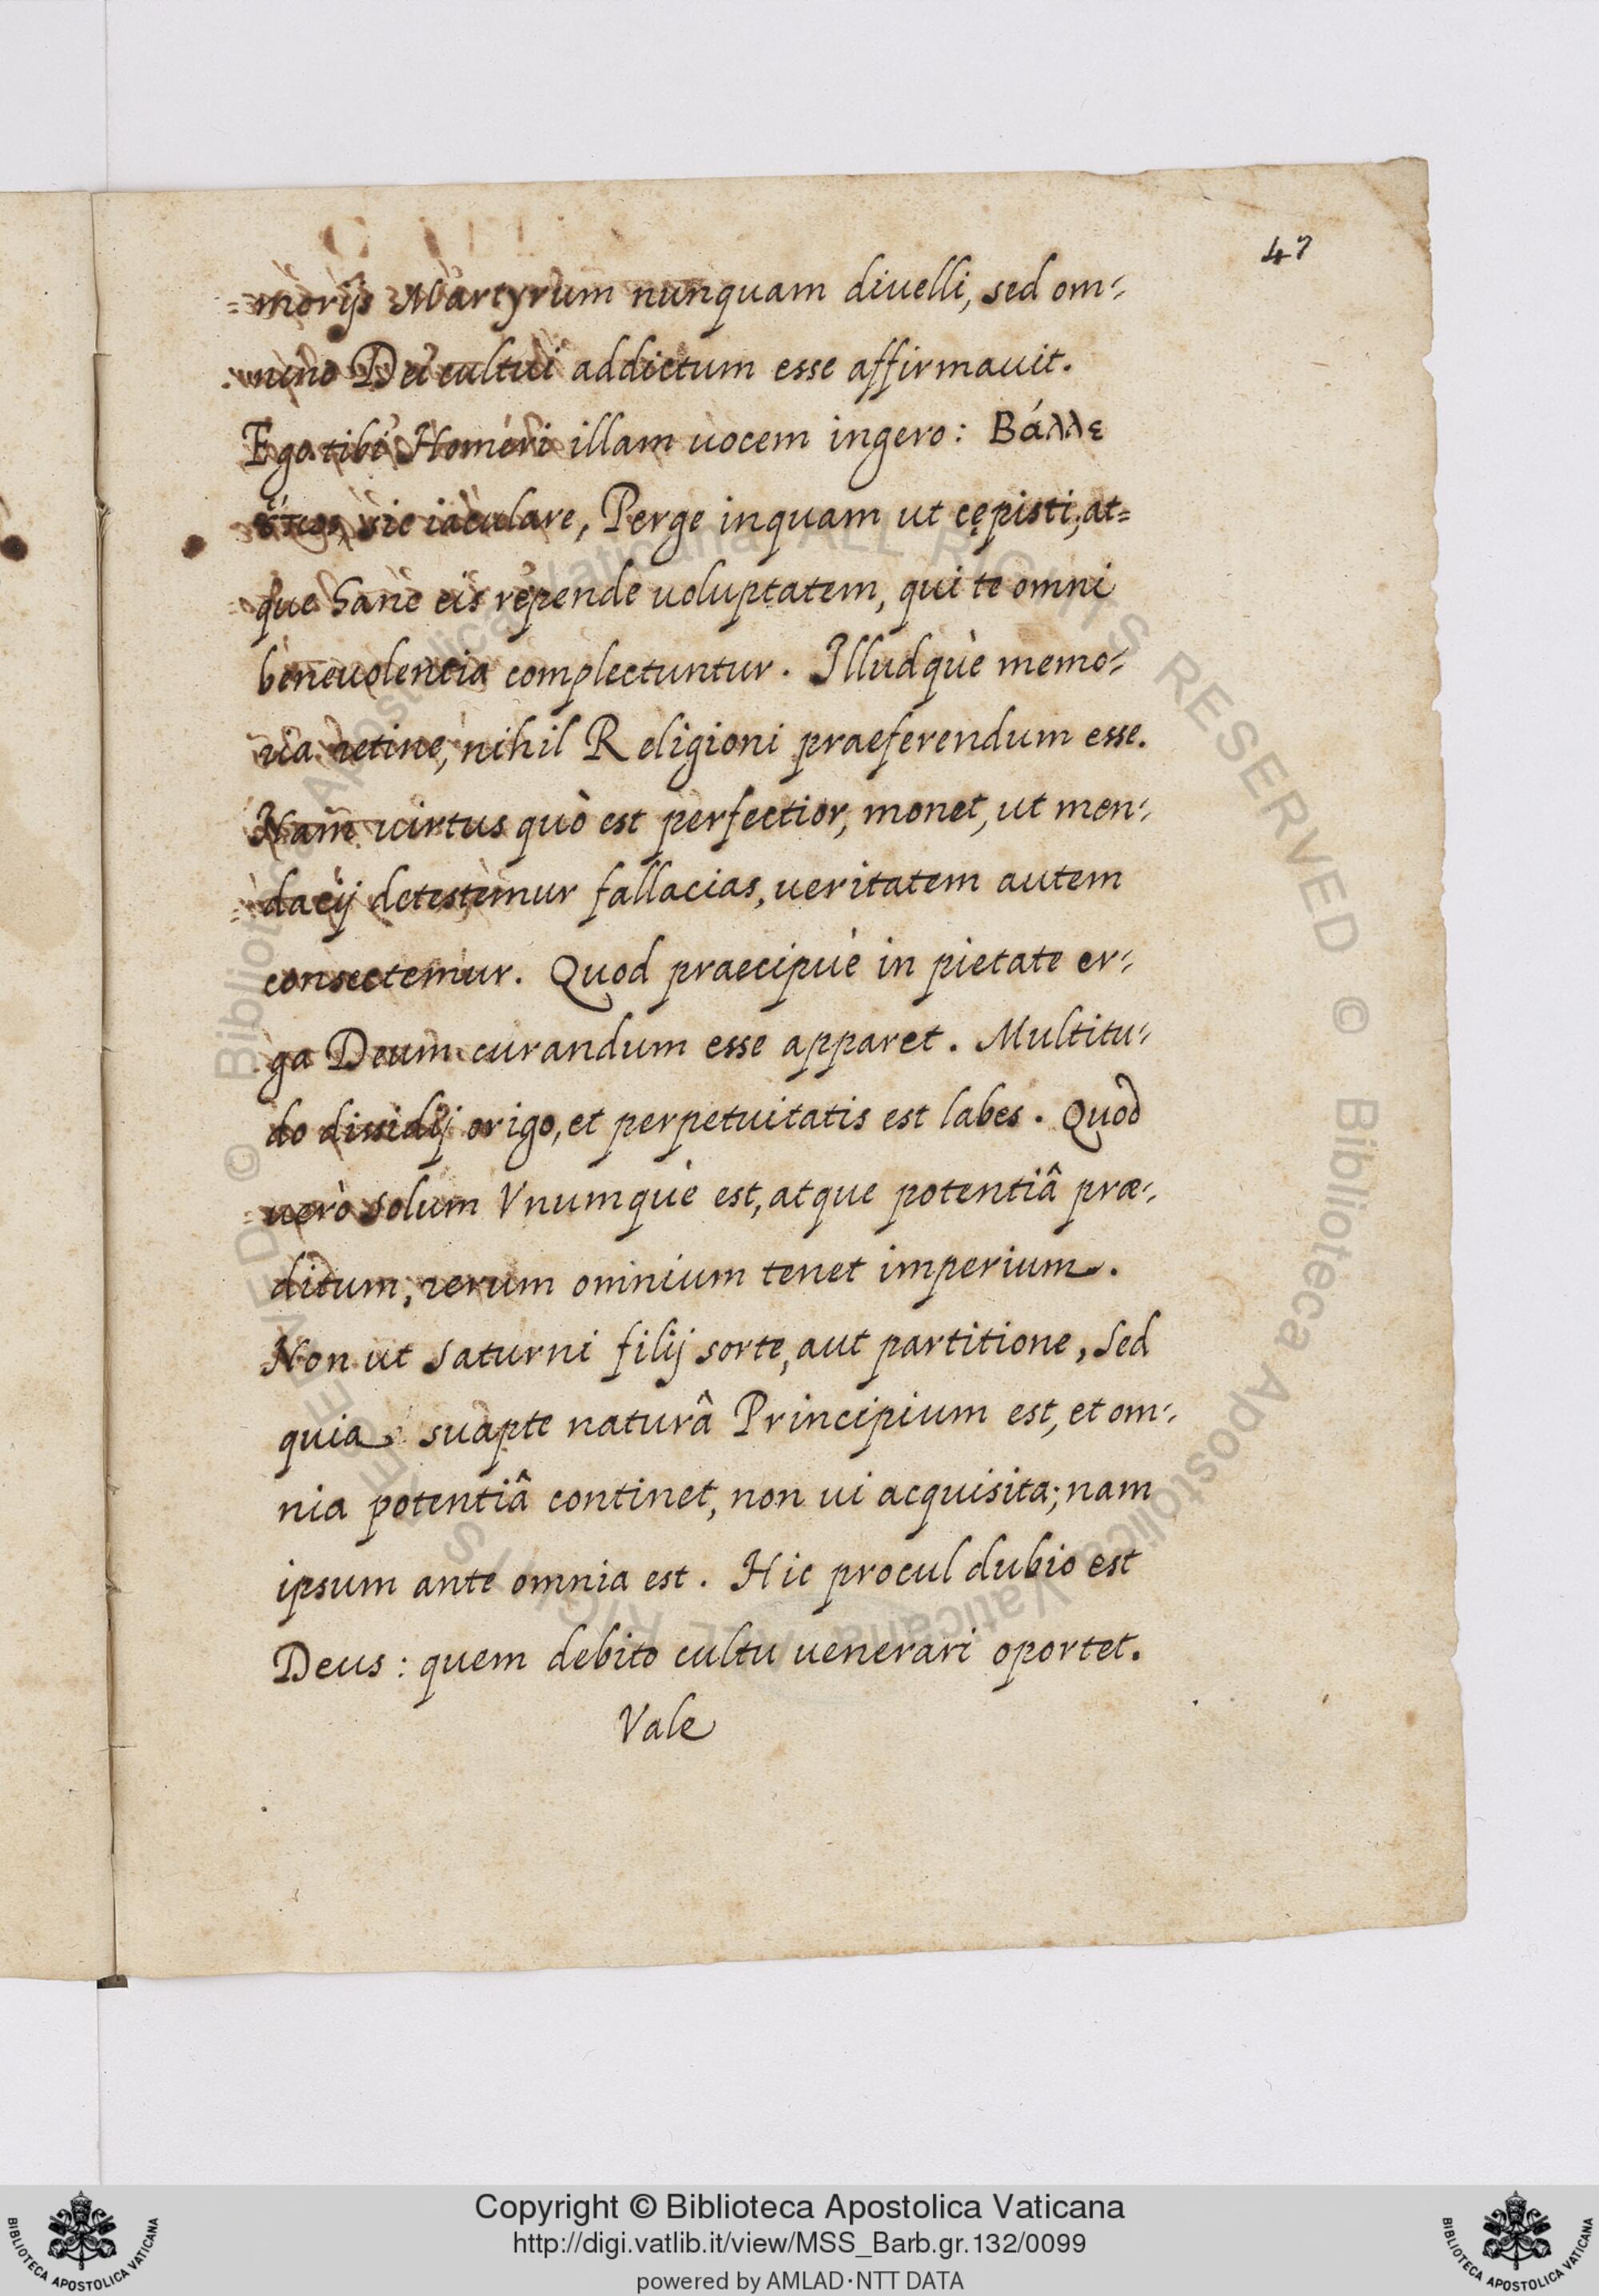 47
morijs Martyrum nunquam diuelli, sed om-
nino Dei cultui addictum esse affirmauit.
Ego tibi Homeri illam uocem ingero: Βάλλε
sic iaculare, Perge inquam ut cępisti, at=
que hanc eis repende uoluptatem, qui te omni
beneuolentia complectuntur. Illudquè memo-
ria retine, nihil Religioni praeferendum esse.
Nam uirtus quò est perfectior, monet, ut men-
dacij detestemur fallacias, ueritatem autem
consectemur. Quod praecipuè in pietate er-
ga Deum curandum esse apparet. Multitu-
do dissidij origo, et perpetuitatis est labes. Quod
uerò solum Vnumquè est, atque potentiâ præ-
ditum, rerum omnium tenet imperium.
Non ut Saturni filij sorte, aut partitione, sed
quia suapte naturâ Principium est, et om-
nia potentiâ continet, non ui acquisita; nam
ipsum ante omnia est. Hic procul dubio est
Deus: quem debito cultu uenerari oportet.
Vale
© Biblioteca Apostolica Vaticana ALL RIGHTS RESERVED © Biblioteca Apostolica Vaticana ALL RIGHTS RESERVED
Copyright © Biblioteca Apostolica Vaticana
http://digi.vatlib.it/view/MSS_Barb.gr.132/0099
powered by AMLAD·NTT DATA
BIBLIOTECA APOSTOLICA VATICANA
BIBLIOTECA APOSTOLICA VATICANA